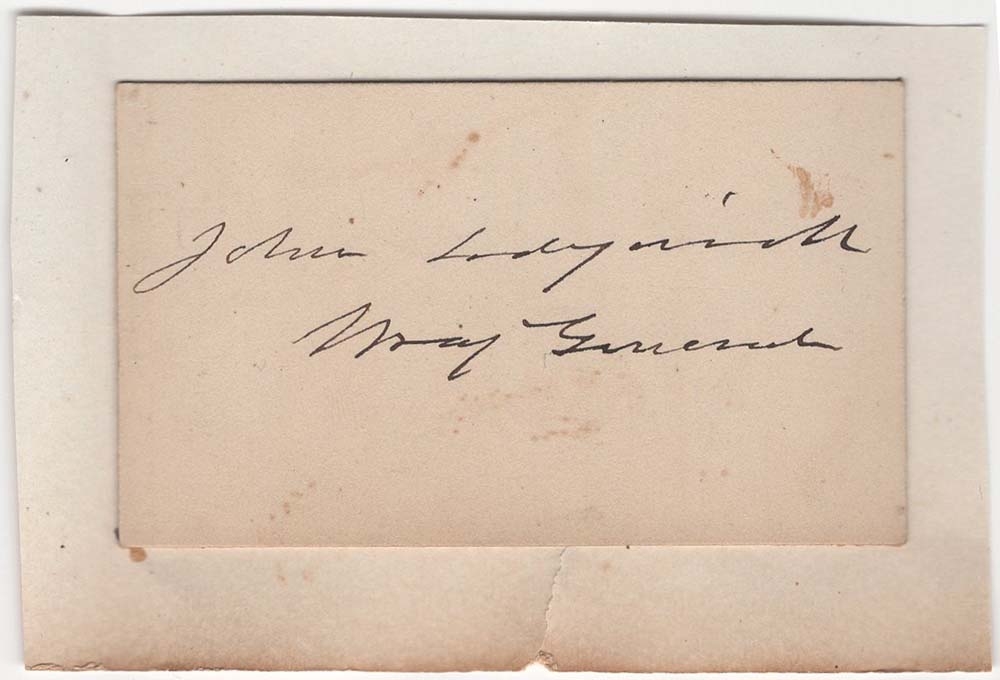 John Sedgwick
Maj General